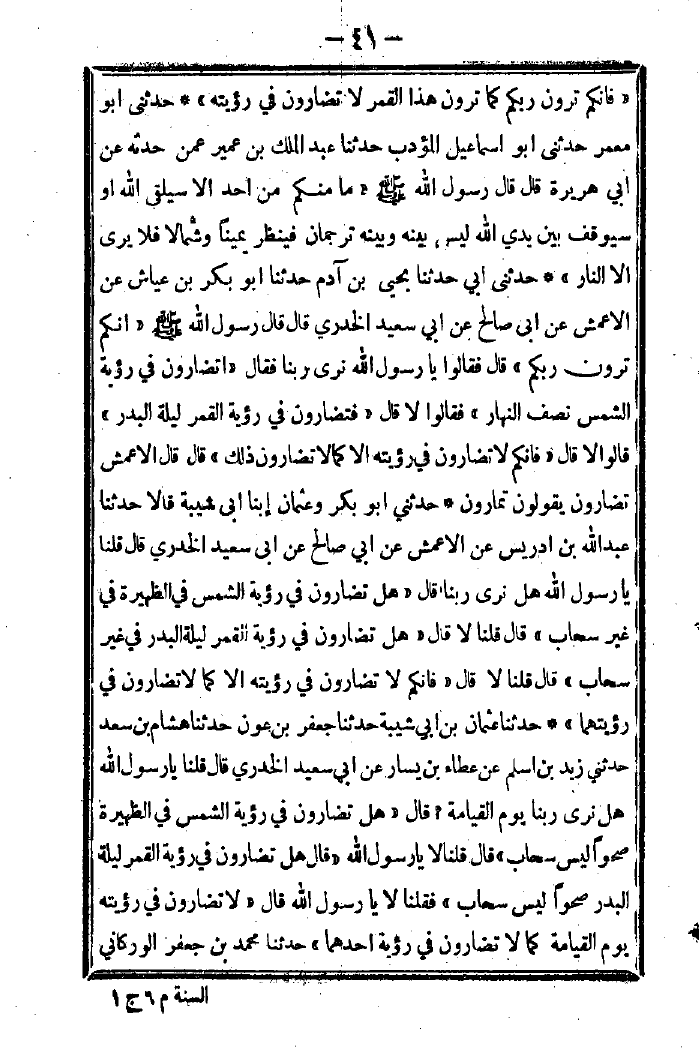 — ٤١ —
« فانكم ترون ربكم كما ترون هذا القمر لا تضارون في رؤيته » * حدثنى ابو
معمر حدثنى ابو اسماعيل المؤدب حدثنا عبد الملك بن عمير عمن حدثه عن
ابي هريرة قال قال رسول الله ﷺ « ما منكم من احد الا سيلقى الله او
سيوقف بين يدي الله ليس بينه وبينه ترجمان فينظر يميناً وشمالا فلا يرى
الا النار » * حدثنى ابي حدثنا يحيى بن آدم حدثنا ابو بكر بن عياش عن
الاعمش عن ابى صالح عن ابي سعيد الخدري قال قال رسول الله ﷺ « انكم
ترون ربكم » قال فقالوا يا رسول الله نرى ربنا فقال « اتضارون في رؤية
الشمس نصف النهار » فقالوا لا قال « فتضارون في رؤية القمر ليلة البدر »
قالوا لا قال « فانكم لا تضارون في رؤيته الا كما لا تضارون ذلك » قال قال الاعمش
تضارون يقولون تمارون * حدثني ابو بكر وعثمان إبنا ابى شيبة قالا حدثنا
عبدالله بن ادريس عن الاعمش عن ابي صالح عن ابى سعيد الخدري قال قلنا
يا رسول الله هل نرى ربنا قال « هل تضارون في رؤية الشمس في الظهيرة في
غير سحاب » قال قلنا لا قال « هل تضارون في رؤية القمر ليلة البدر في غير
سحاب » قال قلنا لا قال « فانكم لا تضارون في رؤيته الا كما لا تضارون في
رؤيتهما » * حدثنا عثمان بن ابي شيبة حدثنا جعفر بن عون حدثنا هشام بن سعد
حدثني زيد بن اسلم عن عطاء بن يسار عن ابي سعيد الخدري قال قلنا يا رسول الله
هل نرى ربنا يوم القيامة ؟ قال « هل تضارون في رؤية الشمس في الظهيرة
صحواً ليس سحاب » قال قلنا لا يا رسول الله « قال هل تضارون في رؤية القمر ليلة
البدر صحواً ليس سحاب » فقلنا لا يا رسول الله قال « لا تضارون في رؤيته
يوم القيامة كما لا تضارون في رؤية احدهما » حدثنا محمد بن جعفر الوركاني
السنة م ٦ ج ١